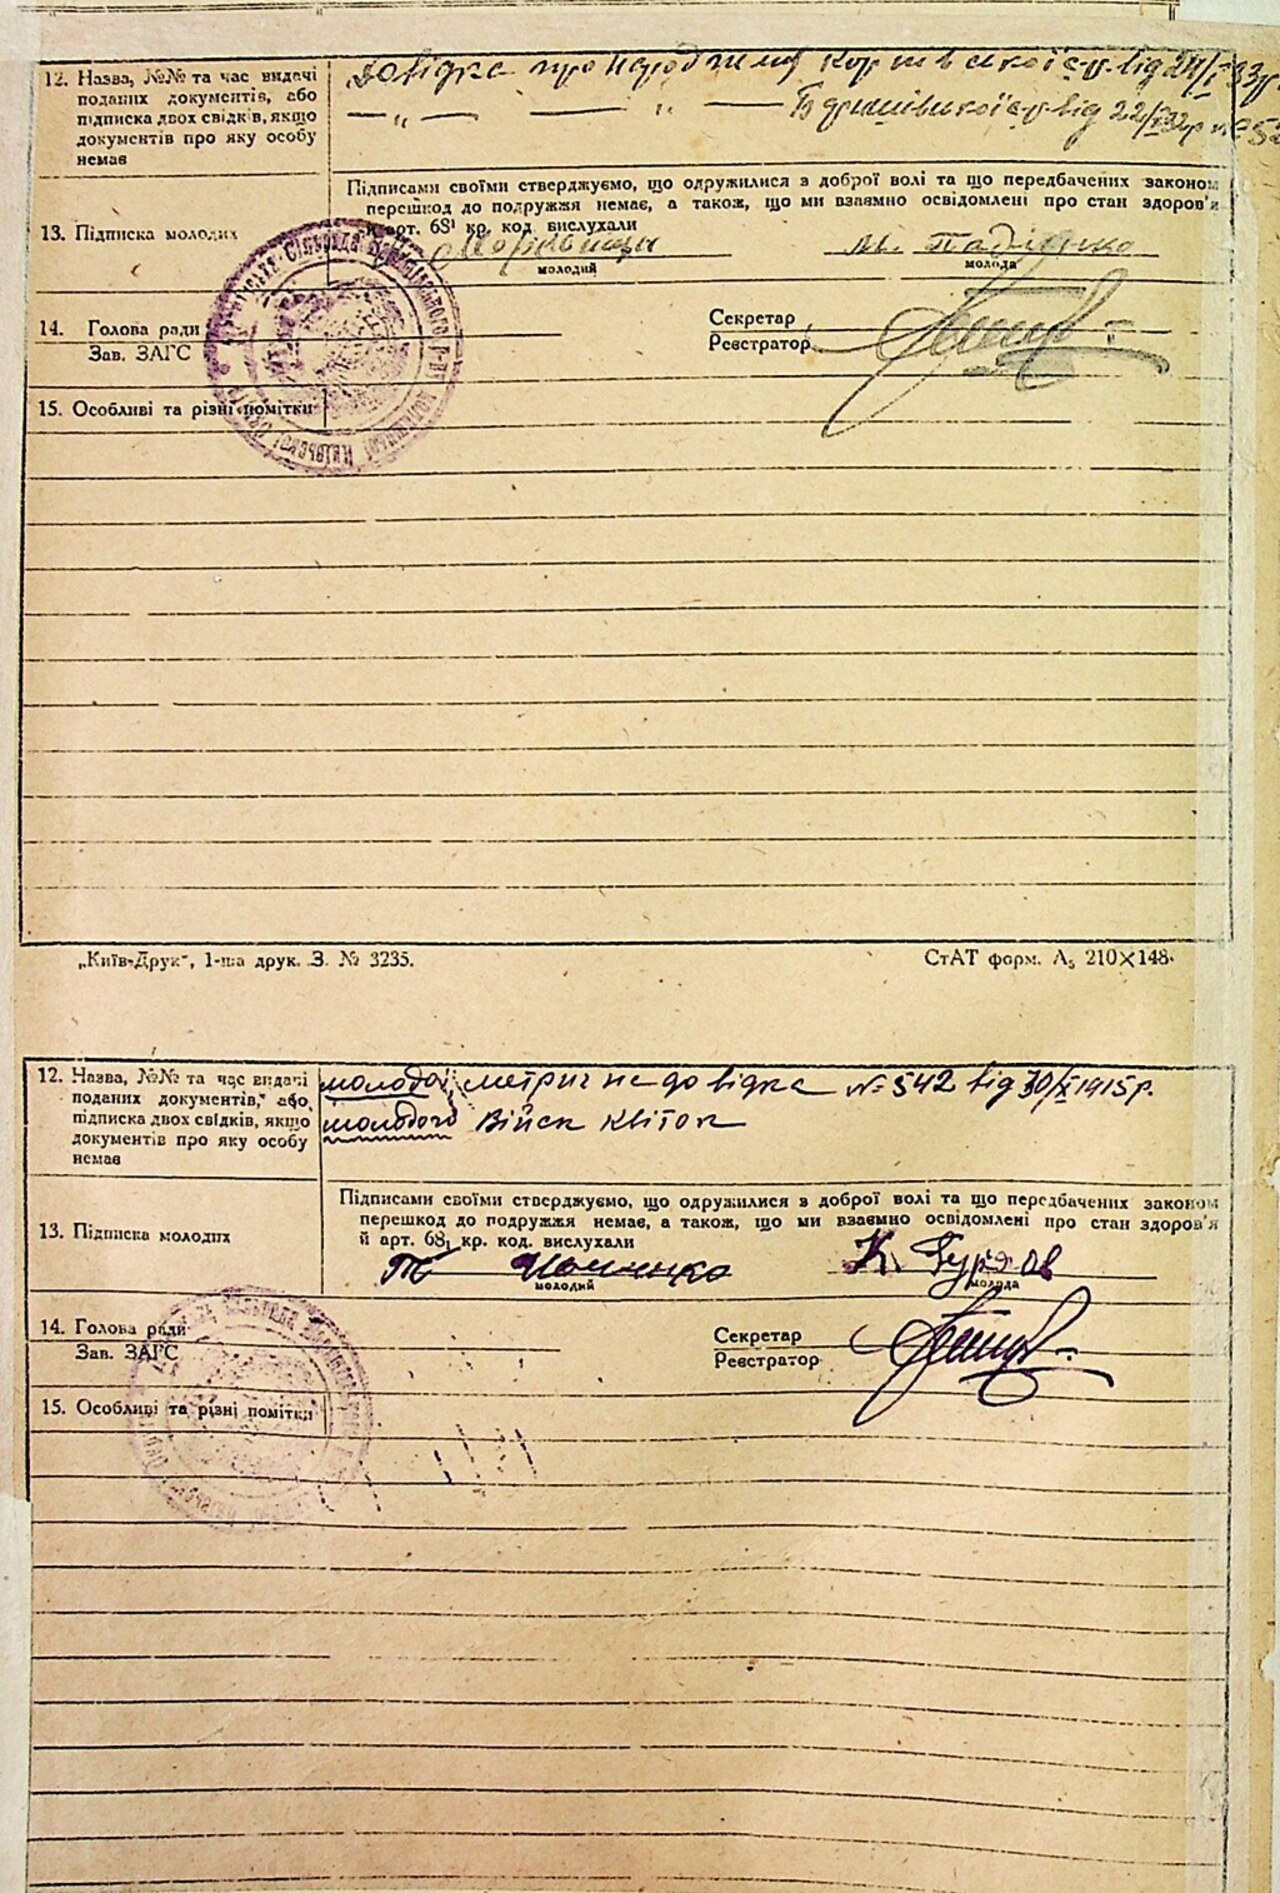 12. Назва, №№ та час видачі
поданих документів, або
підписка двох свідків, якщо
документів про яку особу
немає
довідка про відс. від 24/I 33р.
— „ — — „ — с-р. від 22/I 32р №
Підписами своїми стверджуємо, що одружилися з доброї волі та що передбачених законом
перешкод до подружжя немає, а також, що ми взаємно освідомлені про стан здоров'я
й арт. 68¹ кр. код. вислухали
13. Підписка молодих
молодий
М.
молода
14. Голова ради
Зав. ЗАГС
Секретар
Реєстратор
15. Особливі та різні помітки
„Київ-Друк", 1-ша друк. З. № 3235.
СтАТ форм. А₅ 210×148.
12. Назва, №№ та час видачі
поданих документів, або
підписка двох свідків, якщо
документів про яку особу
немає
молодої метрична довідка № 542 від 30/X 1915р.
молодого Війск квіток
Підписами своїми стверджуємо, що одружилися з доброї волі та що передбачених законом
перешкод до подружжя немає, а також, що ми взаємно освідомлені про стан здоров'я
й арт. 68₁ кр. код. вислухали
13. Підписка молодих
молодий
К.
молода
14. Голова ради
Зав. ЗАГС
Секретар
Реєстратор
15. Особливі та різні помітки